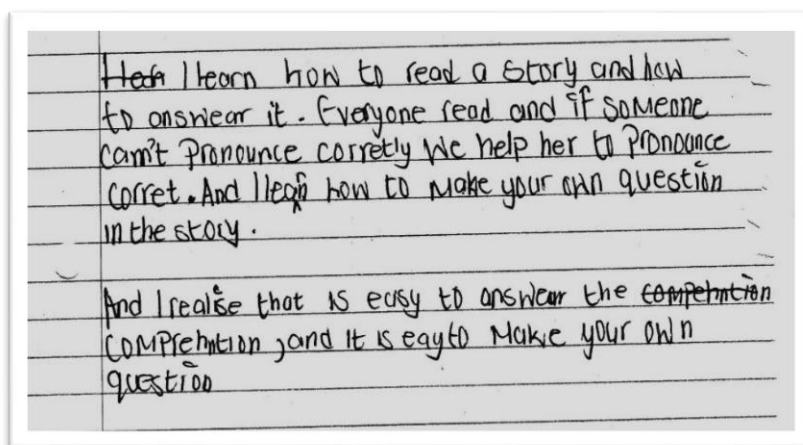 I learn how to read a story and how
to answear it. Everyone read and if someone
cam't pronounce corretly we help her to pronounce
corret. And I learn how to make your own question
in the story.
And I realise that is easy to answear the compehntion
comprehntion, and it is eay to make your own
question